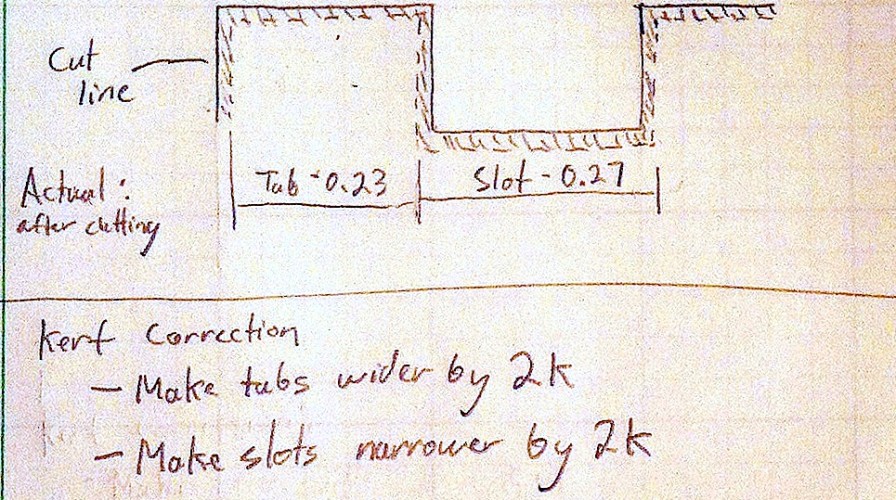 Cut
line
Actual:
after cutting
Tab - 0.23
Slot - 0.27
Kerf Correction
- Make tabs wider by 2k
- Make slots narrower by 2k